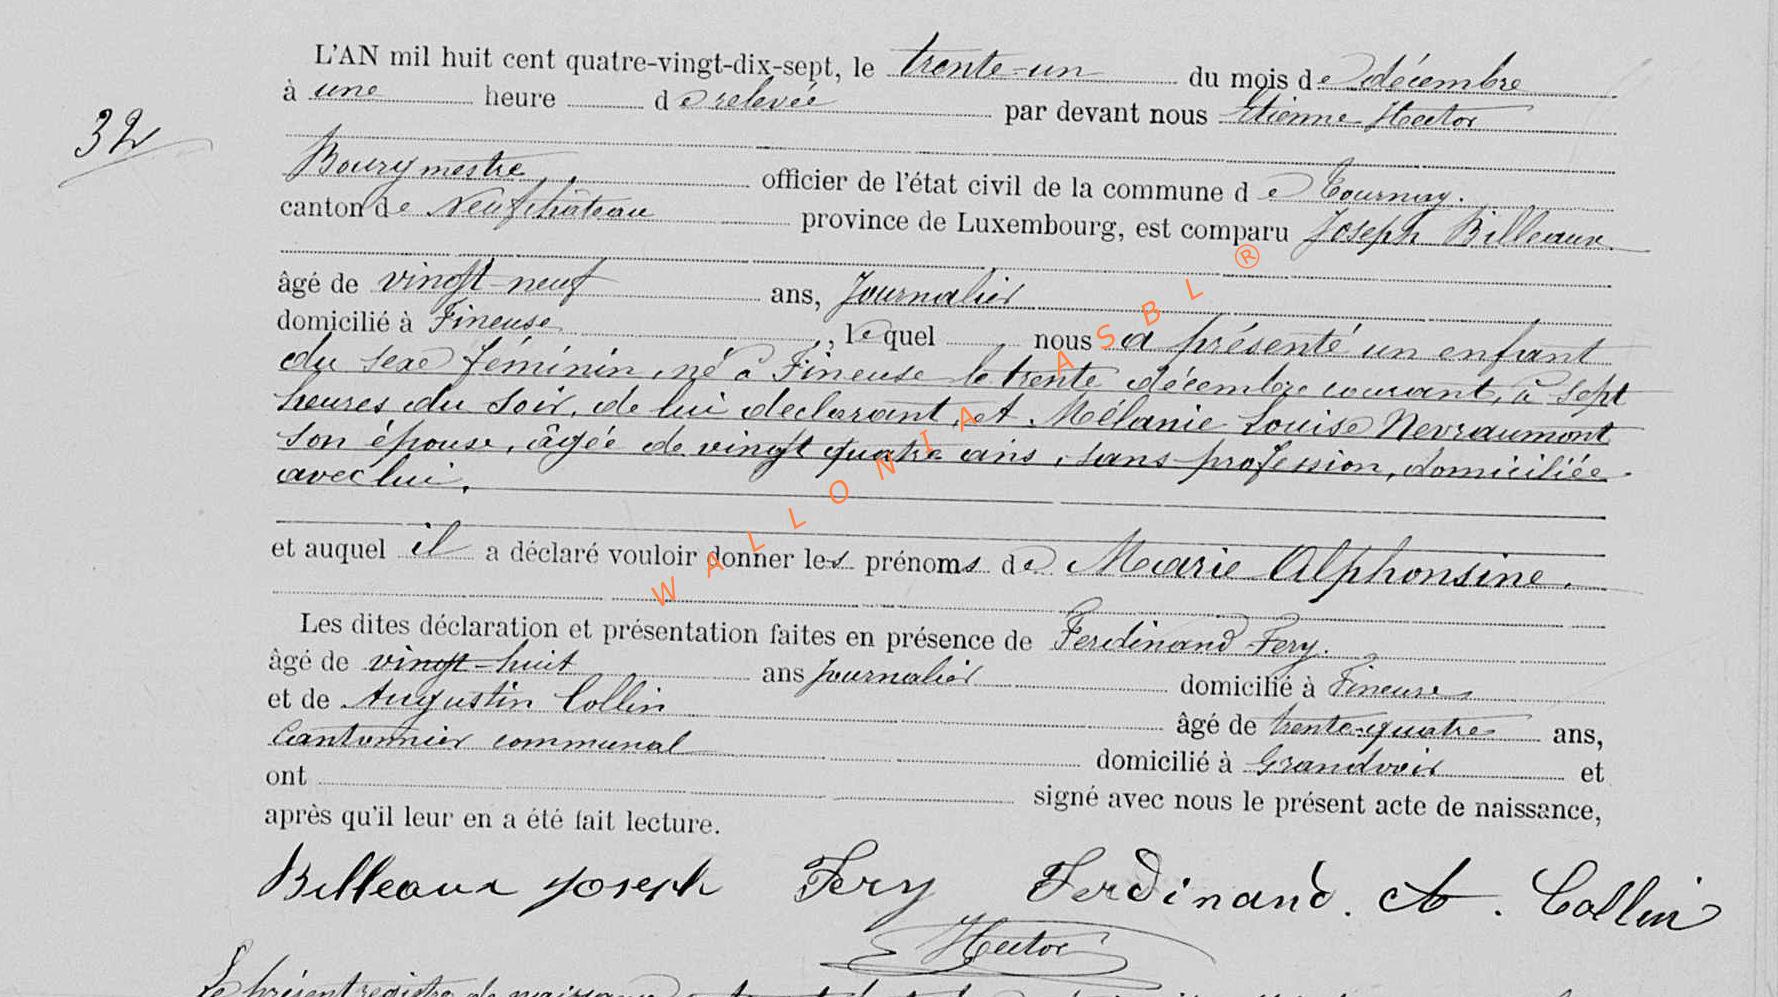 L'AN mil huit cent quatre-vingt-dix-sept, le trente-un du mois de décembre
à une heure de relevée par devant nous Etienne Hector
32
Bourgmestre officier de l'état civil de la commune de Tournay.
canton de Neufchâteau province de Luxembourg, est comparu Joseph Billeaux
âgé de vingt-neuf ans, Journalier
domicilié à Fineuse, lequel nous a présenté un enfant
du sexe féminin, né à Fineuse le trente décembre courant, à sept
heures du soir, de lui declarant, et Mélanie Louise Nevraumont
son épouse, âgée de vingt quatre ans, sans profession, domiciliée
avec lui.
et auquel il a déclaré vouloir donner les prénoms de Marie Alphonsine.
Les dites déclaration et présentation faites en présence de Ferdinand Fery.
âgé de vingt-huit ans journalier domicilié à Fineuse
et de Augustin Collin âgé de trente-quatre ans,
Cantonnier communal domicilié à Grandvoir et
ont signé avec nous le présent acte de naissance,
après qu'il leur en a été fait lecture.
Billeaux Joseph Fery Ferdinand. A. Collin
Hector
Le présent registre de
WALLONIA ASBL ®